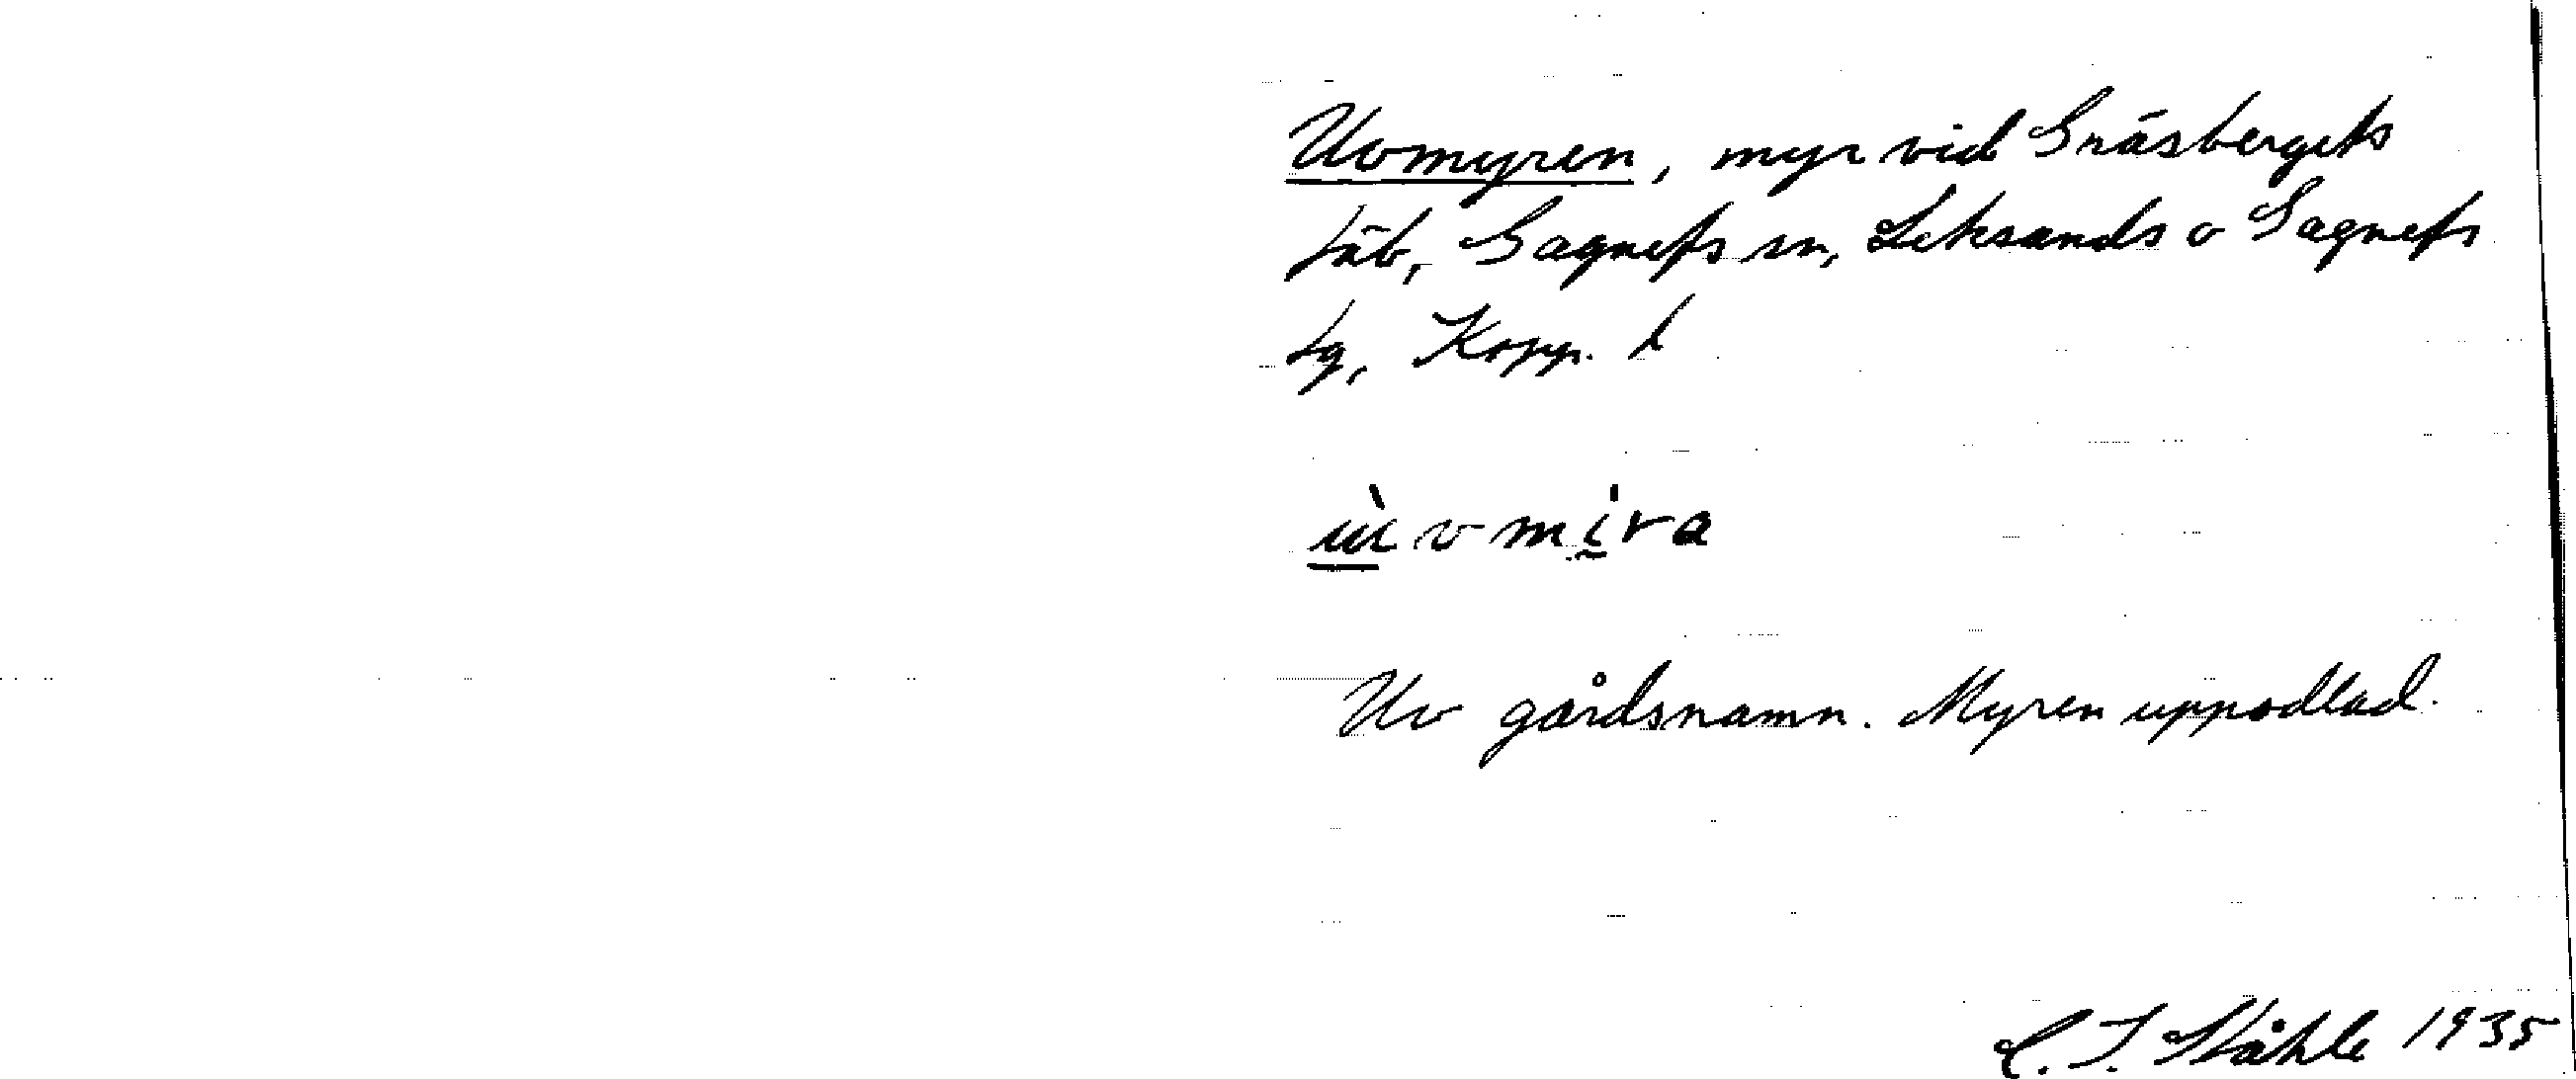 Uvmyren, myr vid Gräsbergets
fäb, Gagnefs sn, Leksands o Gagnefs
tg, Kopp. l
ù v m i r a
Uv gårdsnamn. Myren uppodlad.
C. I. Ståhle 1935